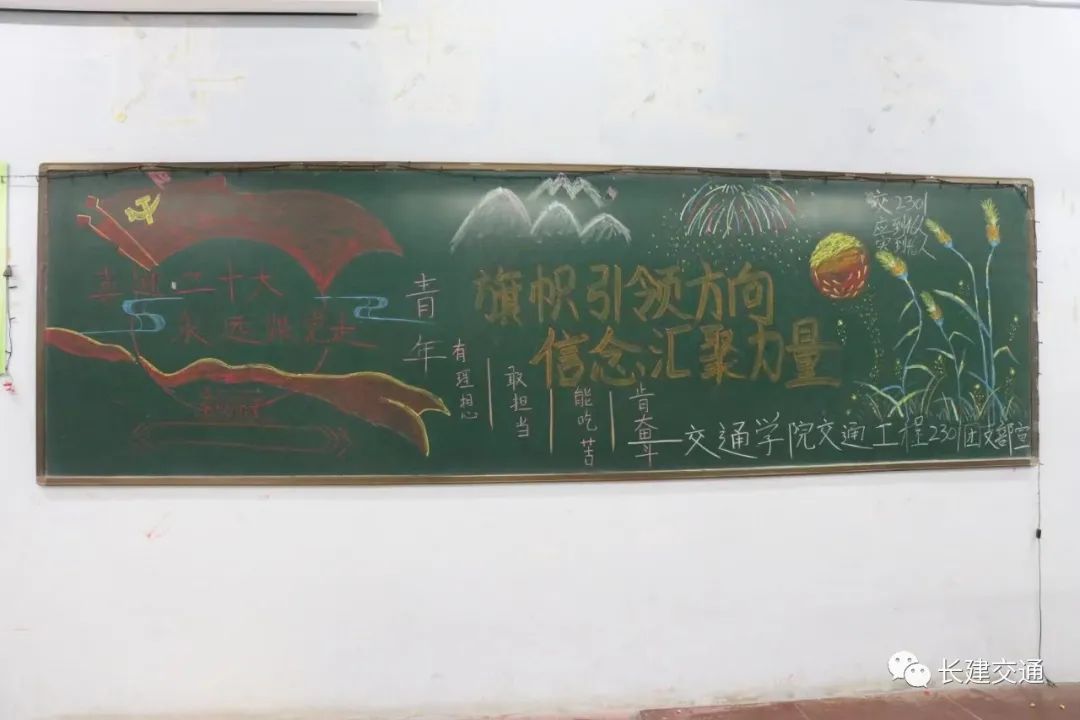 喜迎二十大
永远跟党走
青年
有理想
敢担当
能吃苦
肯奋斗
旗帜引领方向
信念汇聚力量
交2301
应到
实到
—交通学院交通工程2301团支部宣
长建交通